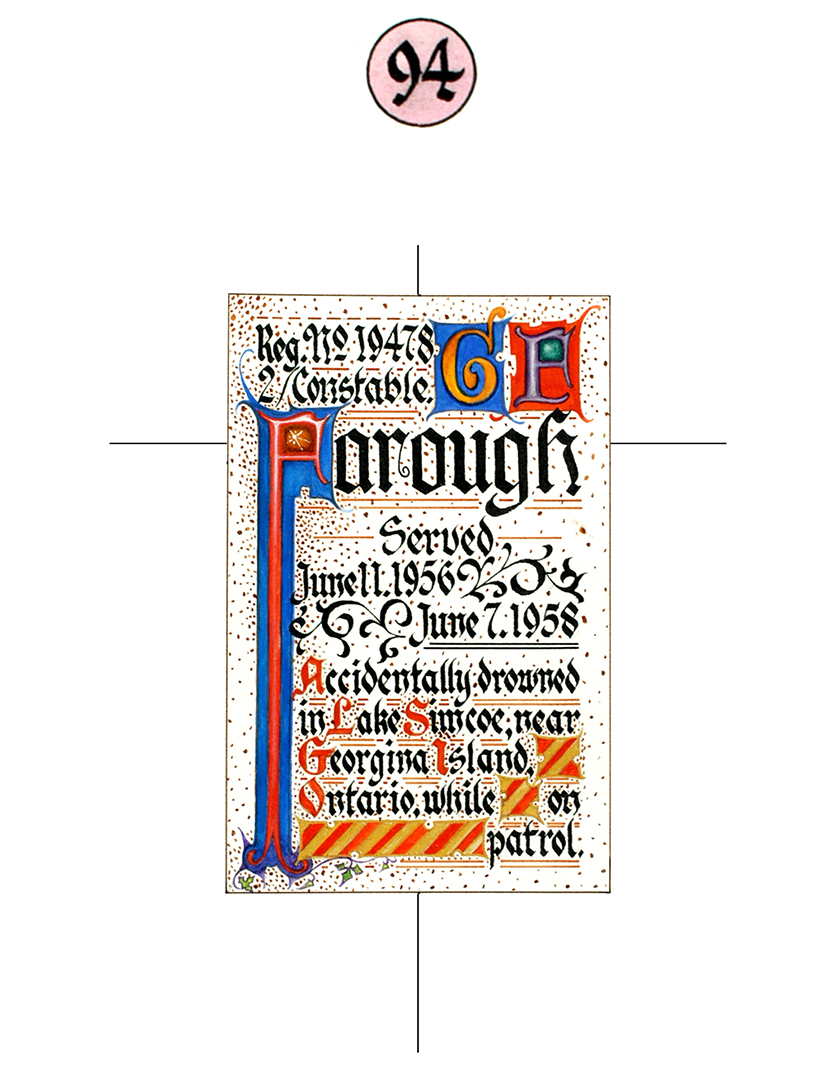 94
Reg. No 19478 G F
2/Constable.
Farough
Served
June 11. 1956
June 7. 1958
Accidentally drowned
in Lake Simcoe, near
Georgina Island,
Ontario, while on
patrol.